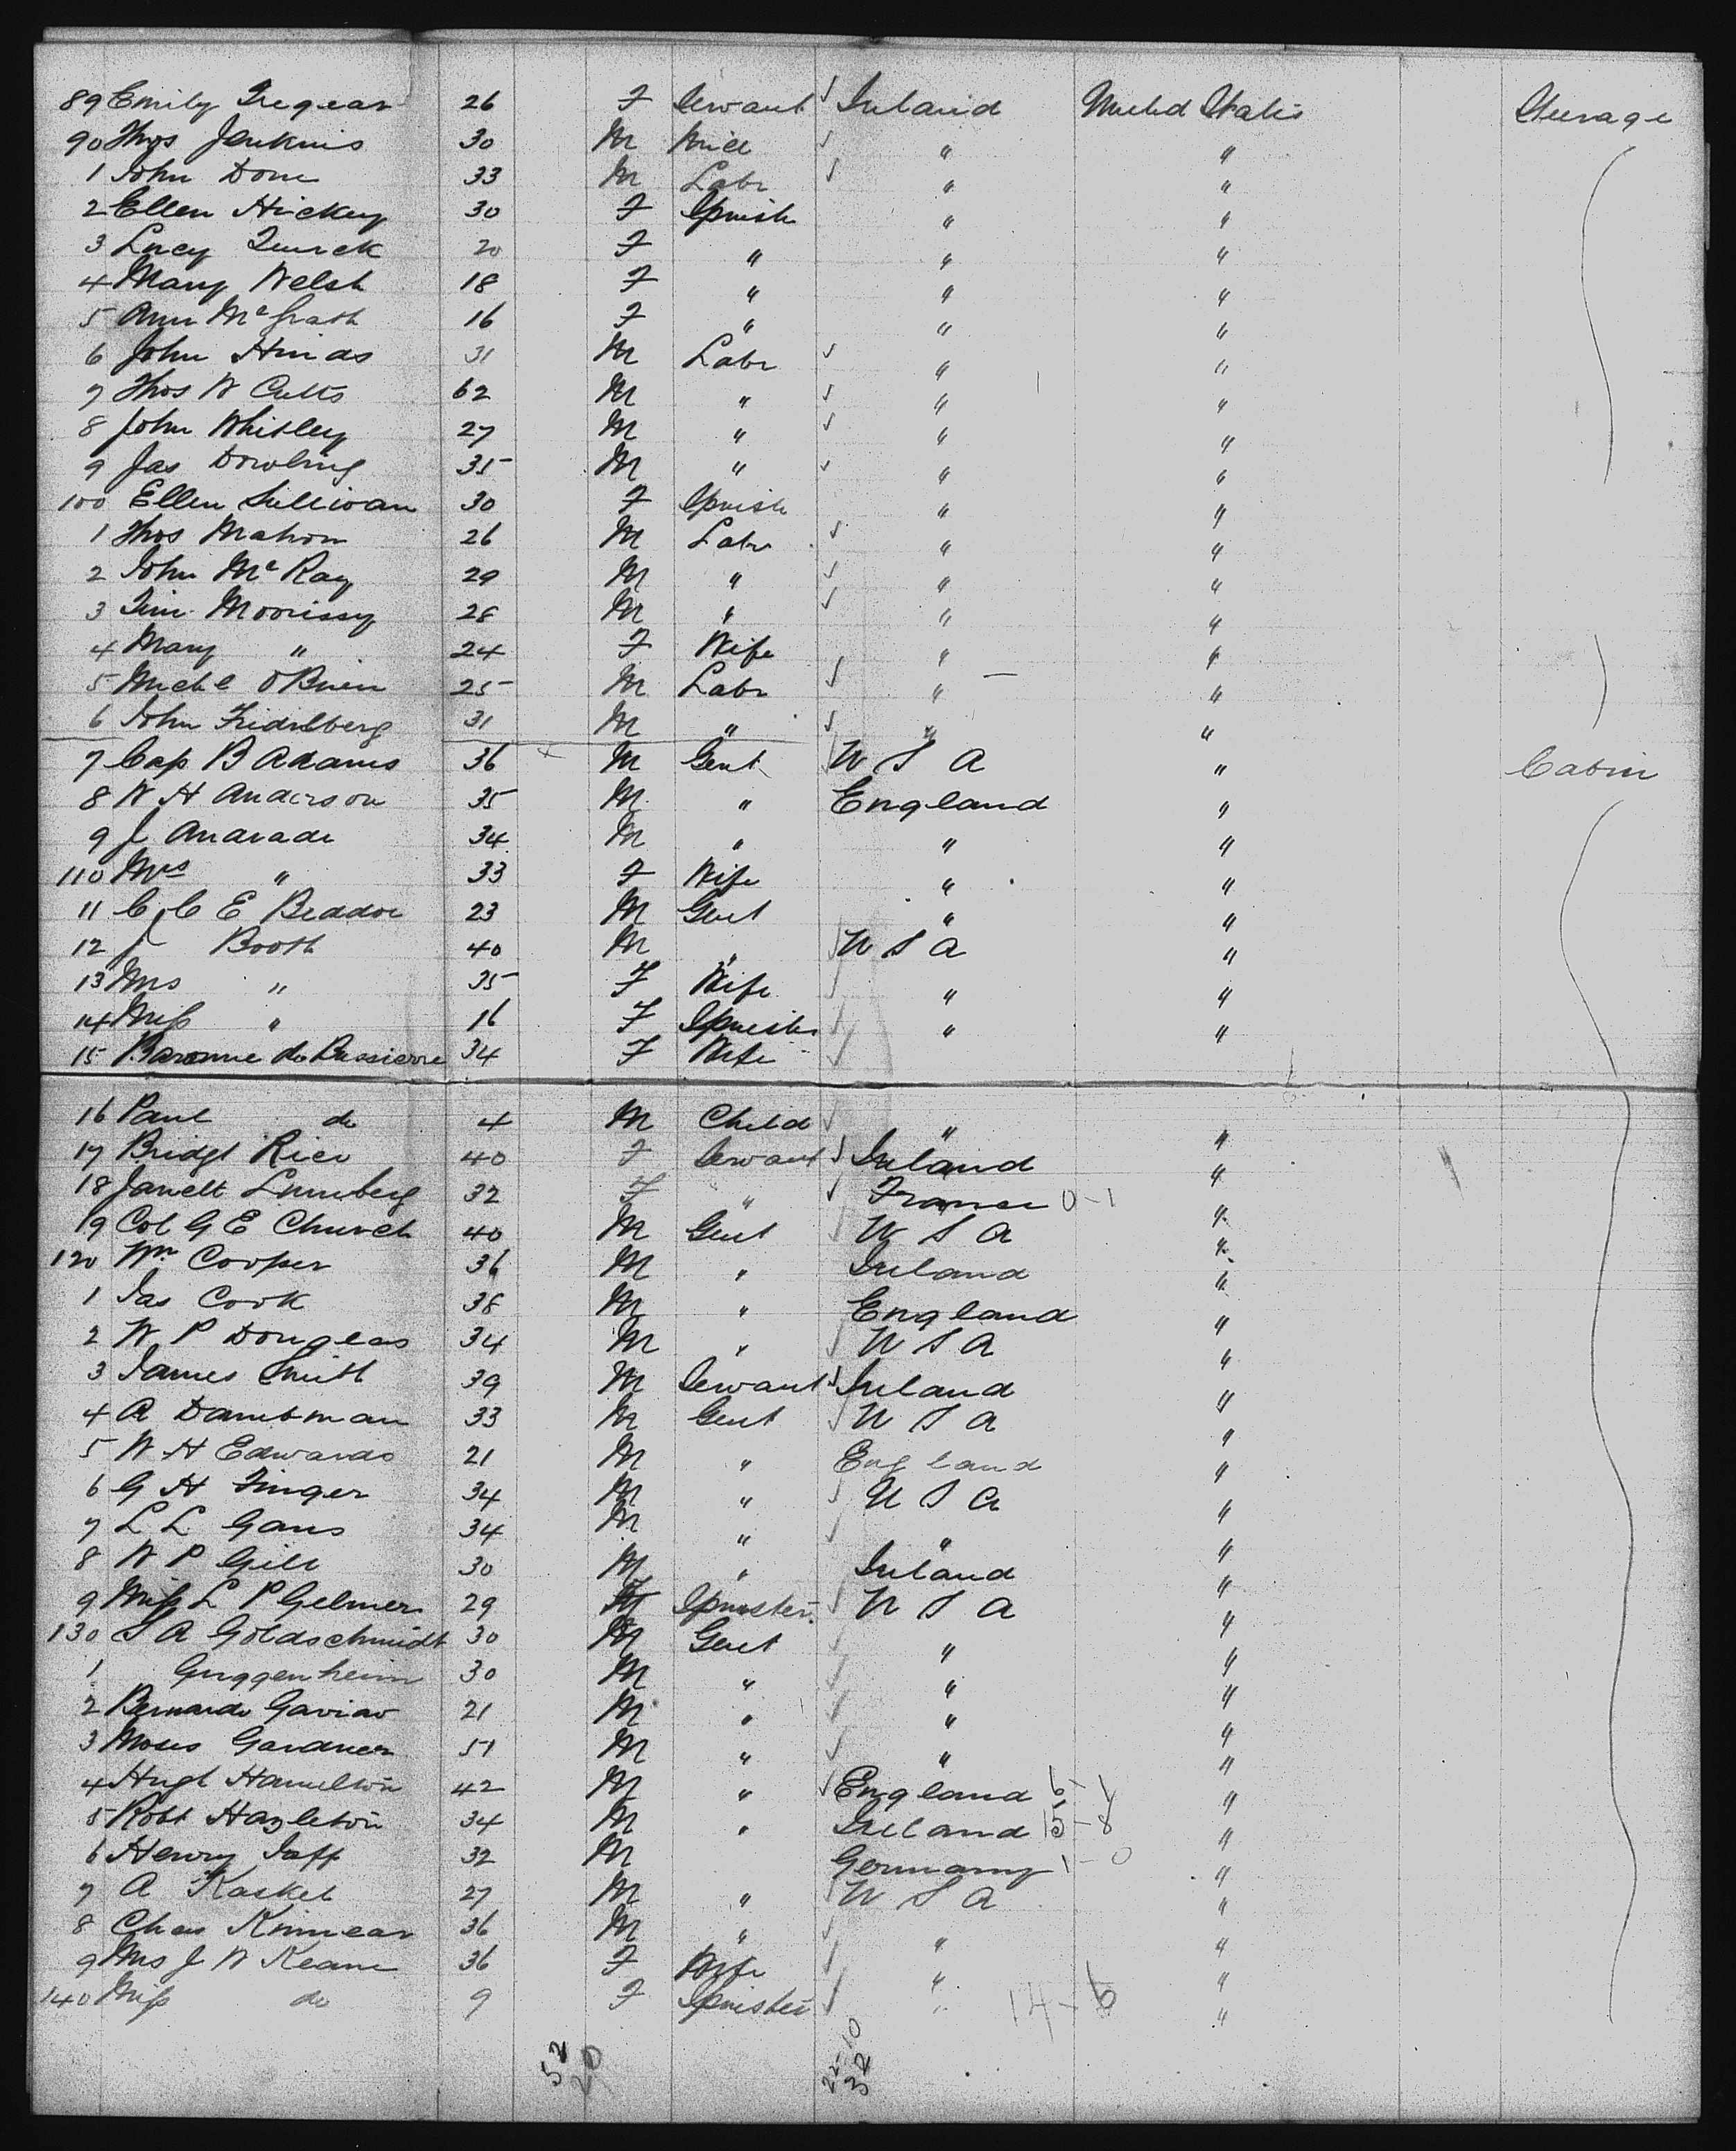 89 Emily Tregear 26 F Servant √ Ireland United States Steerage
90 Thos Jenkins 30 M √ " "
1 John Done 33 M Labr √ " "
2 Ellen Hickey 30 F Spinstr " "
3 Lucy Quirck 20 F " " "
4 Mary Welsh 18 F " " "
5 Ann McGrath 16 F " " "
6 John Hinds 31 M Labr √ " "
7 Thos W Cutts 62 M " √ " "
8 John Whitley 27 M " √ " "
9 Jas Dowling 35 M " √ " "
100 Ellen Sullivan 30 F Spinstr " "
1 Thos Mahon 26 M Labr √ " "
2 John McKay 29 M " √ " "
3 Tim Morrissy 28 M " √ " "
4 Mary " 24 F Wife " "
5 Michl O'Brien 25 M Labr √ " "
6 John 31 M " √ " "
7 Cap B Adams 36 M Gent U S A " Cabin
8 W H Anderson 35 M " England "
9 J Andrade 34 M " " "
110 Mrs " 33 F Wife " "
11 C C E Beddoe 23 M Gent " "
12 J Booth 40 M " √ U S A "
13 Mrs " 35 F Wife √ " "
14 Miss " 16 F Spinster √ " "
15 Baronne de Bussierre 34 F Wife √
16 Paul do 4 M Child √ " "
17 Bridgt Rice 40 F Servant √ Ireland "
18 Janett Luneberg 32 F " √ France 0-1 "
19 Col G E Church 40 M Gent √ U S A "
120 Wm Cooper 36 M " Ireland "
1 Jas Cook 38 M " England "
2 W P Douglas 34 M " √ U S A "
3 James Smith 39 M Servant √ Ireland "
4 A Dambman 33 M Gent √ U S A "
5 W H Edwards 21 M " England "
6 G H Finger 34 M " √ U S A "
7 L L Gans 34 M " √ " "
8 W P Gill 30 M " Ireland "
9 Miss L P Gelmer 29 F Spinster √ U S A "
130 S A Goldschmidt 30 M Gent √ " "
1 Guggenheim 30 M " √ " "
2 Bernardo Gaviao 21 M " √ " "
3 Moses Gardner 51 M " √ " "
4 Hugh Hamilton 42 M " √ England "
5 Robt Hazleton 34 M " Ireland 15-8 "
6 Henry Jaff 32 M Germany 1-0 "
7 A Kaskel 27 M " √ U S A "
8 Chas Kinnear 36 M " √ " "
9 Mrs J W Keane 36 F Wife √ " "
140 Miss do 9 F Spinster √ " 14-6 "
52
20
22-10
32